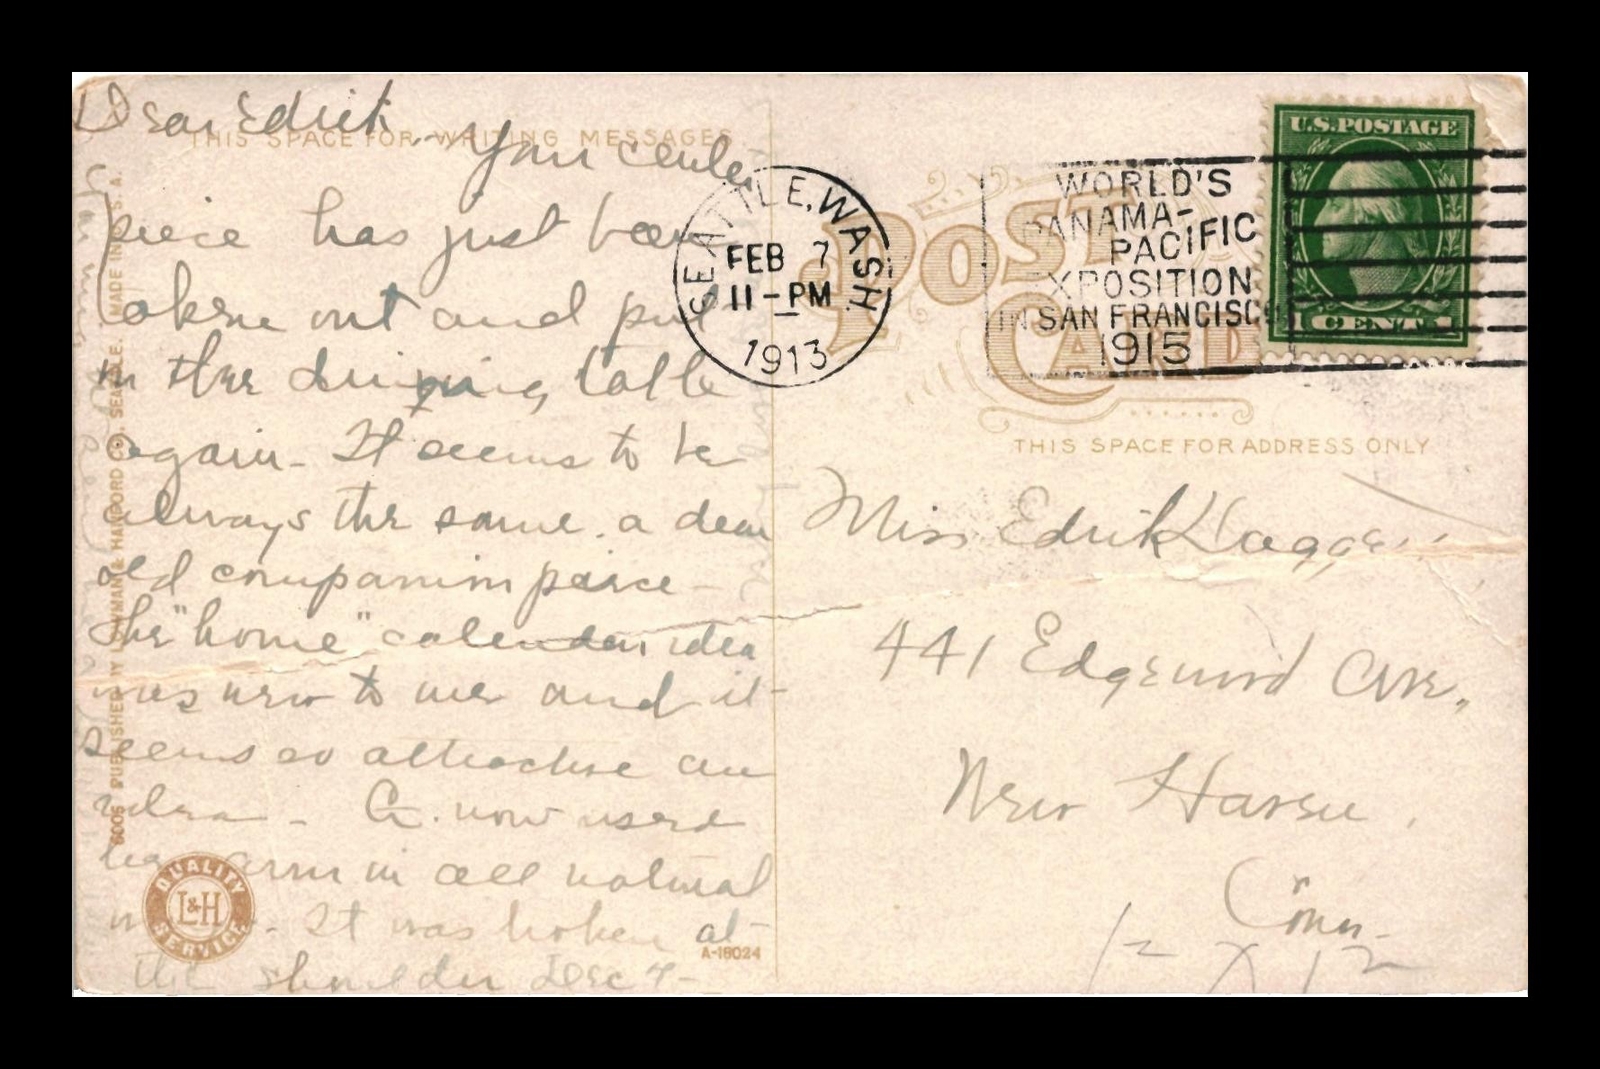 Dear Edrik
THIS SPACE FOR WRITING MESSAGES
Your center
piece has just been
out and put
in the dining table
again - It seems to be
always the same. a dear
old companion piece -
The "home" calendar idea
was new to me and it
seems so attractive an
idea - G. now used
her arm in all natural
It was broken at
the shoulder Dec 7 -
6005 PUBLISHED BY LOWMAN & HANFORD CO. SEATTLE. MADE IN U. S. A.
QUALITY
L&H
SERVICE
A-18024
SEATTLE, WASH.
FEB 7
11-PM
1913
WORLD'S
PANAMA-
PACIFIC
EXPOSITION
IN SAN FRANCISCO
1915
U.S. POSTAGE
1 CENT 1
POST
CARD
THIS SPACE FOR ADDRESS ONLY
Miss Edrik
441 Edgewood Ave.,
New Haven.
Conn.
12 X 12